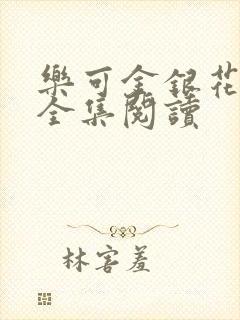 樂可金銀花
全集閱讀
林害羞